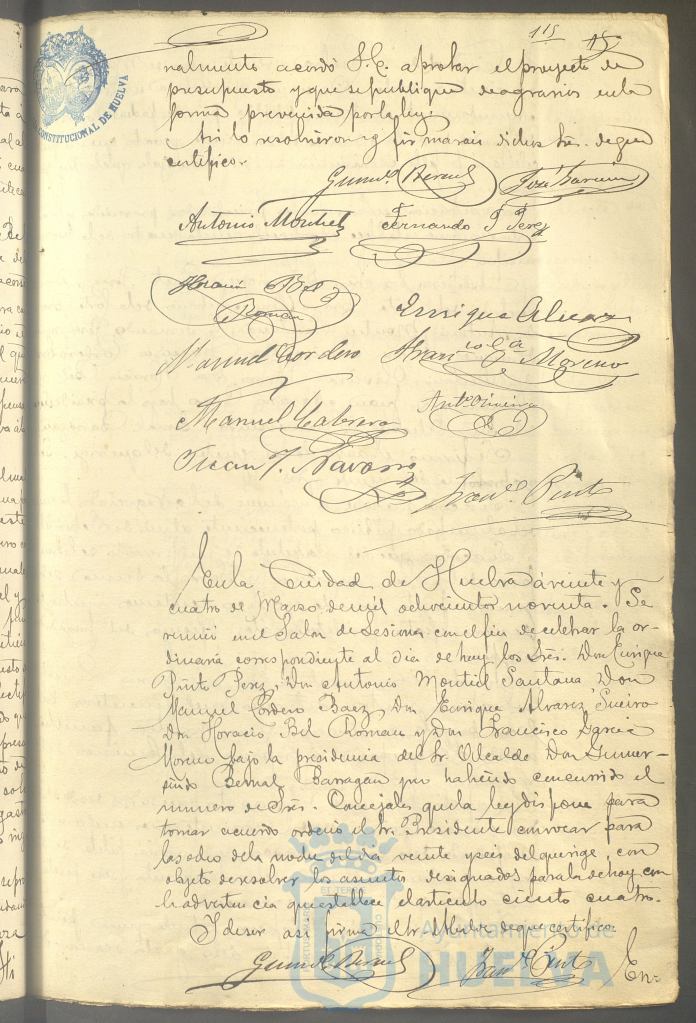 115 15
CONSTITUCIONAL DE HUELVA
nalmente acordó S.E. aprobar el proyecto de
presupuesto y que se publique de agravios en la
forma prevenida por la ley.
Asi lo resolvieron y firmaran dichos Sres. de que
certifico.
Gumdo Bernal José Garcia
Antonio Montiel Fernando T Perez
Horacio Bel
Roman Enrique Alvarez
Manuel Cordero Franco Ga Moreno
Manuel Cabrera
Juan J. Navarro
Franco Pinto
En la Ciudad de Huelva á veinte y
cuatro de Marzo de mil ochocientos noventa. Se
reunió en el Salon de Sesiones con el fin de celebrar la or-
dinaria correspondiente al dia de hoy los Sres. Don Enrique
Pinto Perez, Don Antonio Montiel Santana Don
Manuel Cordero Baez Don Enrique Alvarez Sueiro
Don Horacio Bel Roman y Don Francisco Garcia
Moreno bajo la presidencia del Sr. Alcalde Don Gumer-
sindo Bernal Barragan y no habiendo concurrido el
numero de Sres. Concejales que la ley dispone para
tomar acuerdo ordenó el Sr. Presidente convocar para
las ocho de la noche del dia veinte y seis del que rige, con
objeto de resolver los asuntos designados para la de hoy con
la advertencia que establece el articulo ciento cuatro.
Y de ser asi firma el Sr. Alcalde de que certifico.
Gumdo Bernal Franco Pinto
En=
Ayuntamiento de
HUELVA